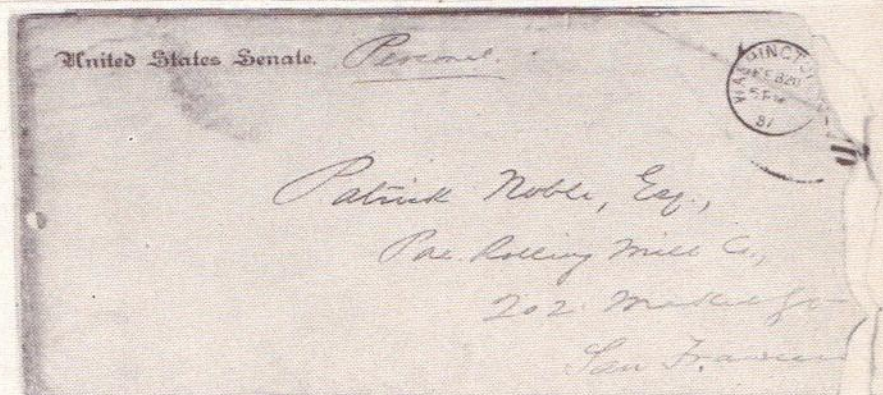 United States Senate. Personal.
WASHINGTON
FEB 20
5 PM
87
Patrick Noble, Esq.,
Pac. Rolling Mill Co.,
202 Market St
San Francisco